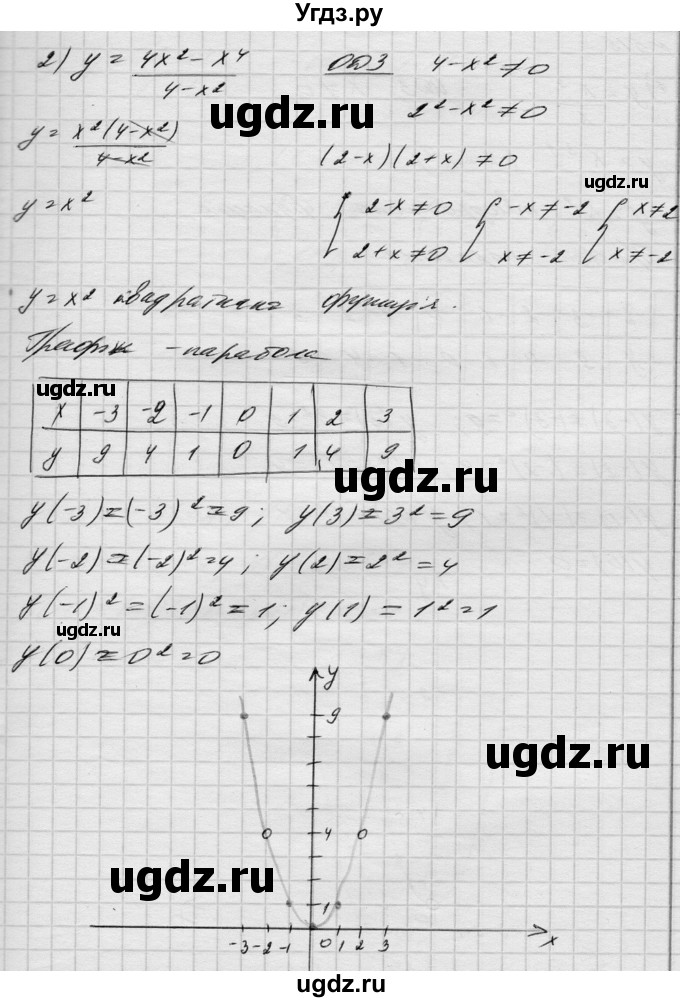 Угдз.ру
2) y = (4x² - x⁴)/(4 - x²) ОДЗ 4 - x² ≠ 0
ugdz.ru
2² - x² ≠ 0
y = x²(4 - x²)/(4 - x²) (2 - x)(2 + x) ≠ 0
ugdz.ru
y = x² { 2 - x ≠ 0 { -x ≠ -2 { x ≠ 2
2 + x ≠ 0 x ≠ -2 x ≠ -2
ugdz.ru
y = x² квадратная функция.
График - парабола
ugdz.ru
x -3 -2 -1 0 1 2 3
y 9 4 1 0 1 4 9
ugdz.ru
y(-3) = (-3)² = 9; y(3) = 3² = 9
y(-2) = (-2)² = 4; y(2) = 2² = 4
y(-1)² = (-1)² = 1; y(1) = 1² = 1
ugdz.ru
y(0) = 0² = 0
y
9
ugdz.ru
4
ugdz.ru
1
-3 -2 -1 0 1 2 3 x
ugdz.ru